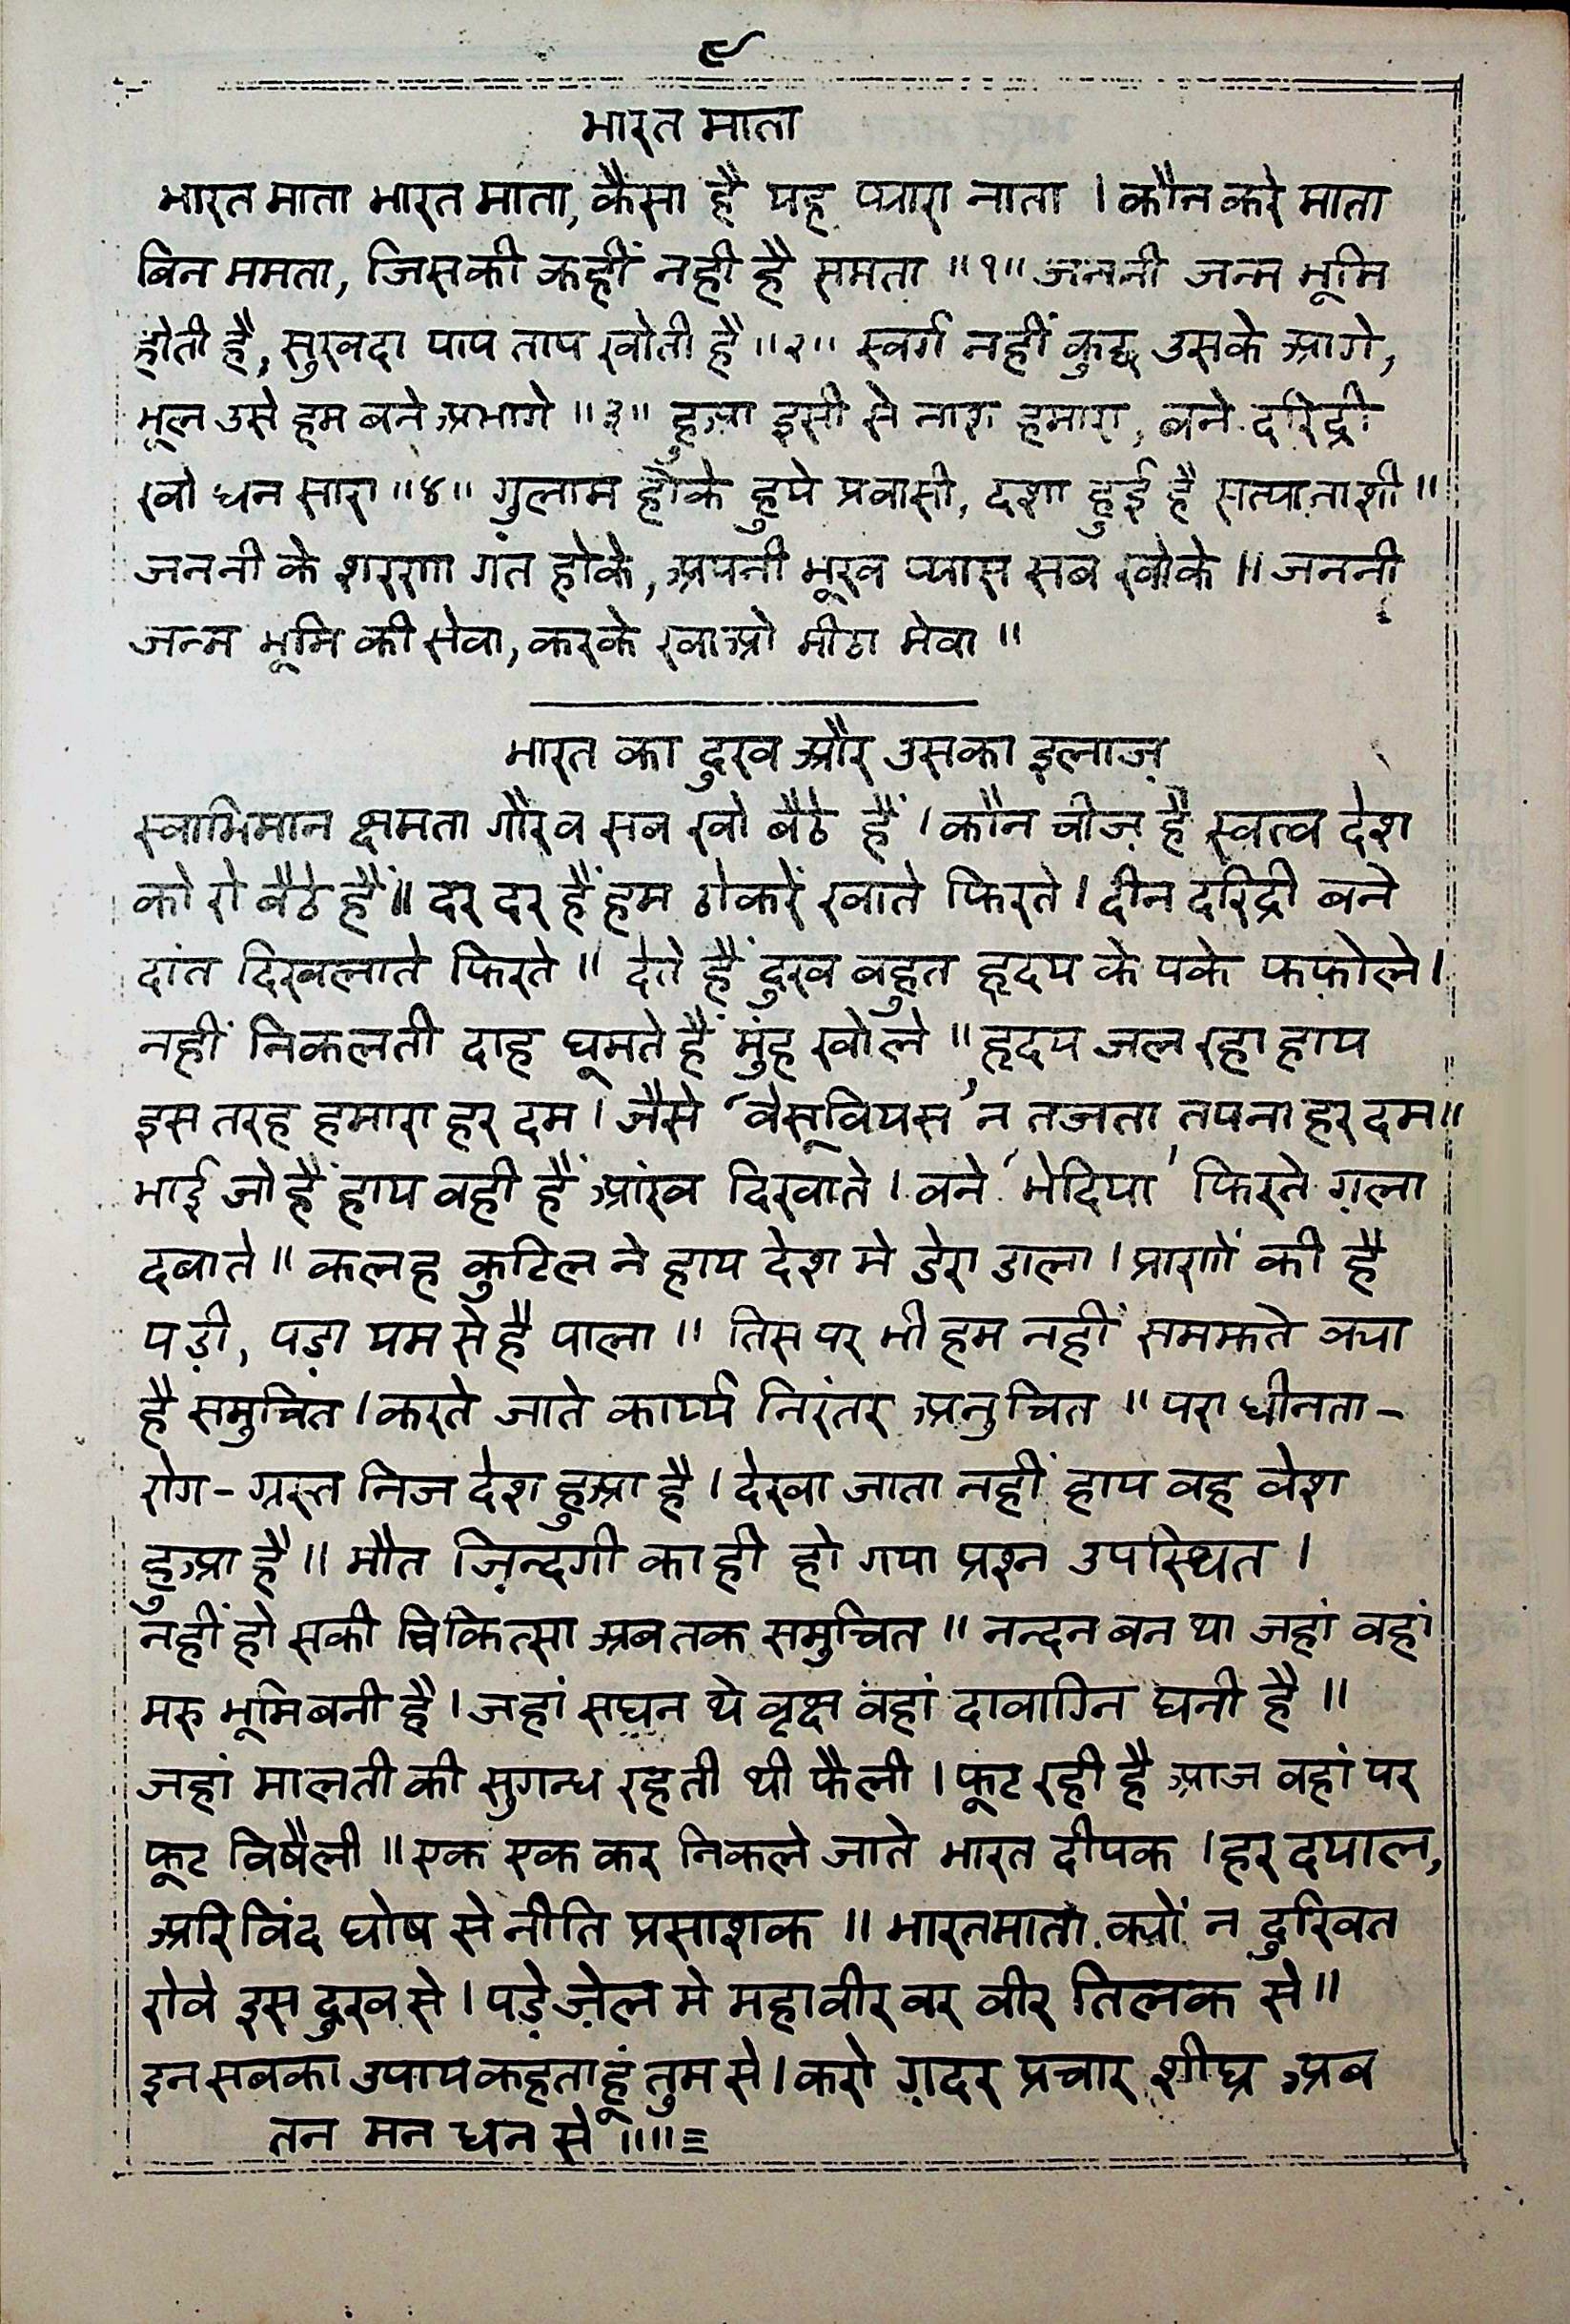 ९
भारत माता
भारत माता भारत माता, कैसा है यह प्यारा नाता । कौन करे माता
बिन ममता, जिसकी कहीं नही है समता ॥१॥ जननी जन्म भूमि
होती है, सुखदा पाप ताप खोती है ॥२॥ स्वर्ग नहीं कुछ उसके आगे,
भूल उसे हम बने अभागे ॥३॥ हुआ इसी से नाश हमारा, बने दरिद्री
खो धन सारा ॥४॥ गुलाम होके हुये प्रवासी, दशा हुई है सत्यानाशी ॥
जननी के शरणा गत होके, अपनी भूख प्यास सब खोके ॥ जननी
जन्म भूमि की सेवा, करके खाओ मीठा मेवा ॥
भारत का दुख और उसका इलाज़
स्वाभिमान क्षमता गौरव सब खो बैठे हैं । कौन चीज़ है स्वत्व देश
को रो बैठे हैं ॥ दर दर हैं हम ठोकरें खाते फिरते । दीन दरिद्री बने
दांत दिखलाते फिरते ॥ देते हैं दुख बहुत हृदय के पके फफ़ोले ।
नहीं निकलती दाह घूमते हैं मुंह खोले ॥ हृदय जल रहा हाय
इस तरह हमारा हर दम । जैसे 'वेसूवियस' न तजता तपना हर दम ॥
भाई जो हैं हाय वही हैं आंख दिखाते । बने 'भेदिया' फिरते ग़ला
दबाते ॥ कलह कुटिल ने हाय देश मे डेरा डाला । प्राणों की है
पड़ी, पड़ा यम से है पाला ॥ तिस पर भी हम नहीं समझते क्या
है समुचित । करते जाते कार्य्य निरंतर अनुचित ॥ परा धीनता -
रोग - ग्रस्त निज देश हुआ है । देखा जाता नहीं हाय वह वेश
हुआ है ॥ मौत ज़िन्दगी का ही हो गया प्रश्न उपस्थित ।
नहीं हो सकी चिकित्सा अब तक समुचित ॥ नन्दन बन था जहां वहां
मरु भूमि बनी है । जहां सघन थे वृक्ष वहां दावाग्नि घनी है ॥
जहां मालती की सुगन्ध रहती थी फैली । फूट रही है आज वहां पर
फूट विषैली ॥ एक एक कर निकले जाते भारत दीपक । हर दयाल,
अरिविंद घोष से नीति प्रसाशक ॥ भारतमाता क्यों न दुखित
रोवे इस दुख से । पड़े ज़ेल मे महावीर वर वीर तिलक से ॥
इन सबका उपाय कहता हूं तुम से । करो ग़दर प्रचार शीघ्र अब
तन मन धन से ॥॥=